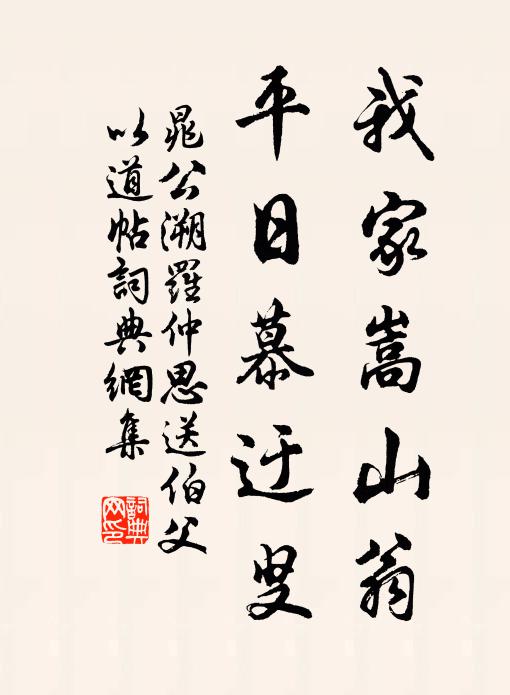 我家嵩山翁
平日慕迂叟
晁公溯羅仲思送伯父
以道帖詞典網集
詞典网印